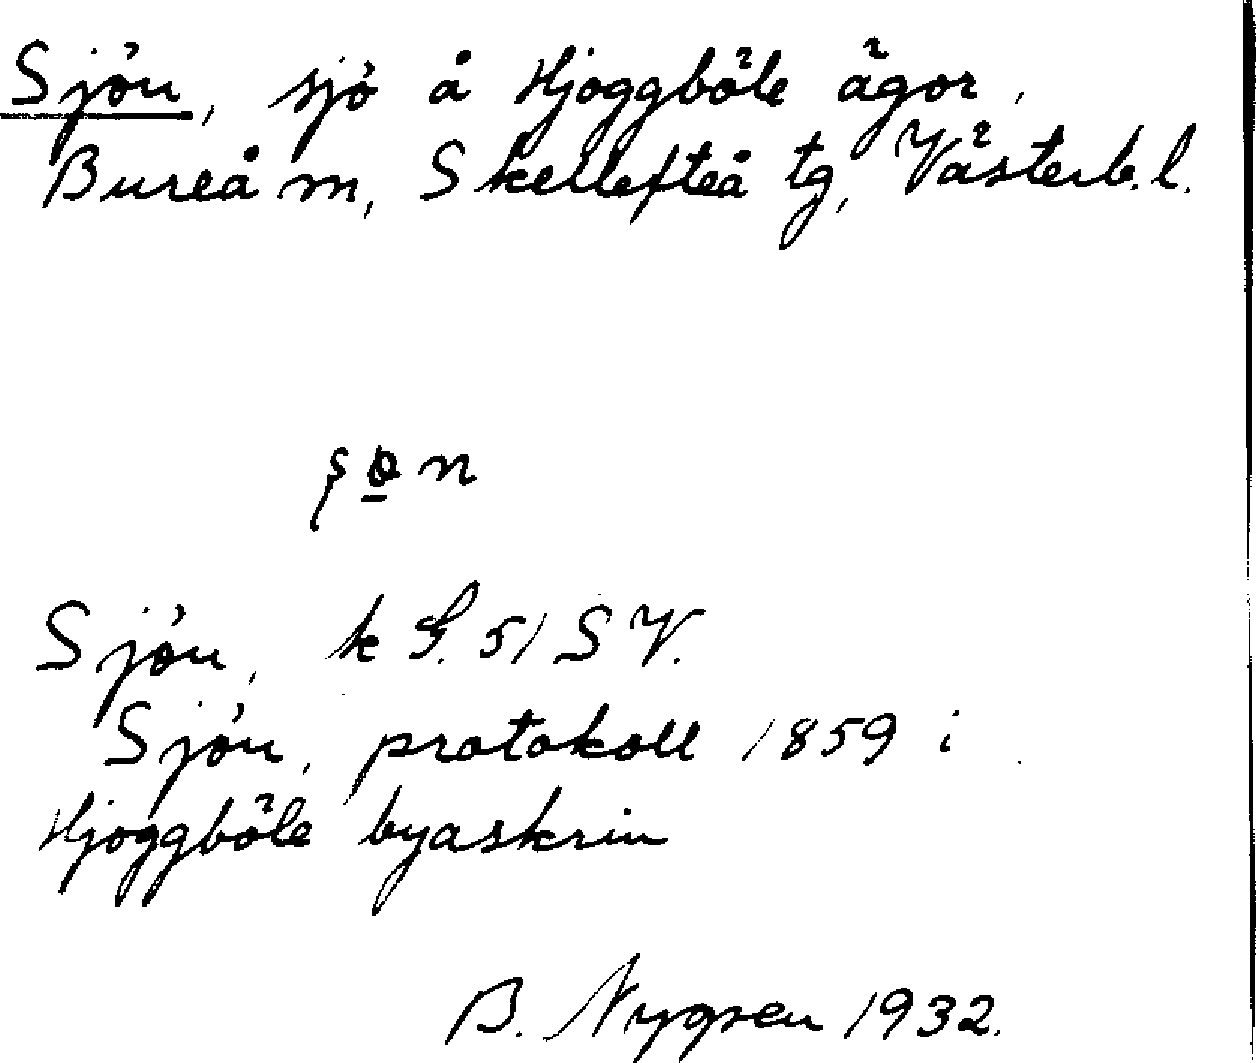 Sjön, sjö å Hjoggböle ägor,
Bureå m, Skellefteå tg, Västerb. l.
Sjön, k G. 51 S V.
Sjön, protokoll 1859 i
Hjoggböle byaskrin
B. Nygren 1932.